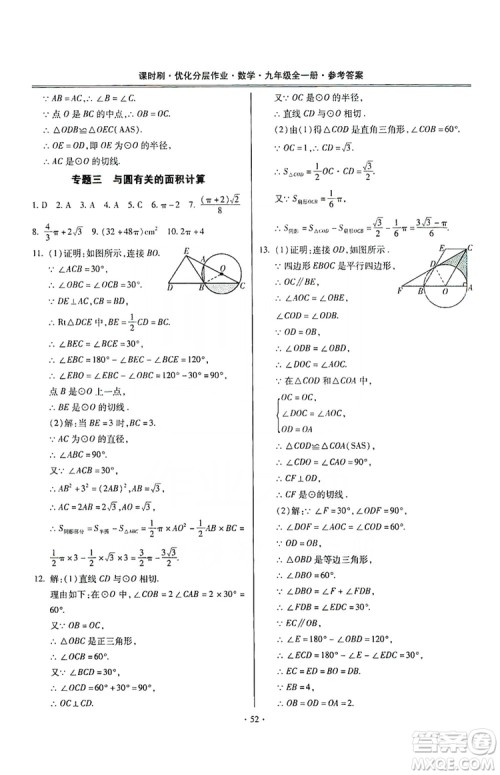 课时刷·优化分层作业·数学·九年级全一册·参考答案
∵AB=AC=,∴∠B=∠C.
∵点O是BC的中点,∴OB=OC.
∴△ODB≌△OEC(AAS).
∴OE=OD,即OE是⊙O的半径.
∴AC是⊙O的切线.
专题三 与圆有关的面积计算
1. D 2. A 3. A 4. A 5. C 6. π-2 7. (π+2)√2/8
8. 4/3 π+√3 9. (32+48π)cm² 10. 2π+4
11. (1)证明:如图所示,连接BO.
∵∠ABC=90°,
∴∠OBC=∠OCB=30°.
∵DE⊥AC,CB=BD,
∴Rt△DCE中,BE=1/2 CD=BC.
∴∠BEC=∠BCE=30°.
∴∠EBC=180°-∠BEC-∠BCE=120°.
∴∠EBO=∠EBC-∠OBC=120°-30°=90°.
点B是⊙O上的一点,
∴BE是⊙O的切线.
(2)解:当BE=3时,BC=3.
∵AC为⊙O的直径,
∴∠ABC=90°.
又∵∠ACB=30°,
∴AB²+3²=(2AB)²,∴AB=√3.
∴AC=2AB=2√3,∴AO=√3.
∴S阴影部分=S半圆-S△ABC=1/2 π×AO²-1/2 AB×BC=
1/2 π×3-1/2×√3×3=3/2 π-3√3/2.
12. 解:(1)直线CD与⊙O相切.
理由如下:∵在⊙O中,∠COB=2∠CAB=2×30°=60°.
又∵OB=OC,
∴△OBC是正三角形,
∴∠OCB=60°.
又∵OC是⊙O的半径,
∴CD与⊙O相切.
(2)由(1)得△OCD是直角三角形,∠COB=60°.
∵OC=1,
∴CD=√3.
∴S△COD=1/2 OC·CD=√3/2.
又∵S扇形OCB=π/6,
∴S阴影=S△COD-S扇形OCB=√3/2-π/6.
13. (1)证明:如图所示,连接OD.
∵四边形EBOC是平行四边形,
∴OC∥BE,
∴∠AOC=∠OBE,
∠COD=∠ODB.
∵OB=OD,
∴∠OBD=∠ODB.
∴∠DOC=∠AOC.
∵在△COD和△COA中,
OC=OC,
∠DOC=∠AOC,
OD=OA,
∴△COD≌△COA(SAS).
∴∠CDO=∠CAO=90°.
∴CF⊥OD.
∴CF是⊙O的切线.
(2)解:∵∠F=30°,∠ODF=90°,
∴∠DOF=∠AOC=∠COD=60°.
∵OD=OB,
∴△OBD是等边三角形,
∴∠DBO=60°.
∵∠DBO=∠F+∠FDB,
∴∠FDB=∠EDC=30°.
∵EC∥OB,
∴∠E=180°-∠OBD=120°.
∴∠ECD=180°-∠E-∠EDC=30°.
∴EC=ED=BO=DB.
∵EB=4,
∴OB=OD=OA=2.
·52·
答案圈
MXQE.COM